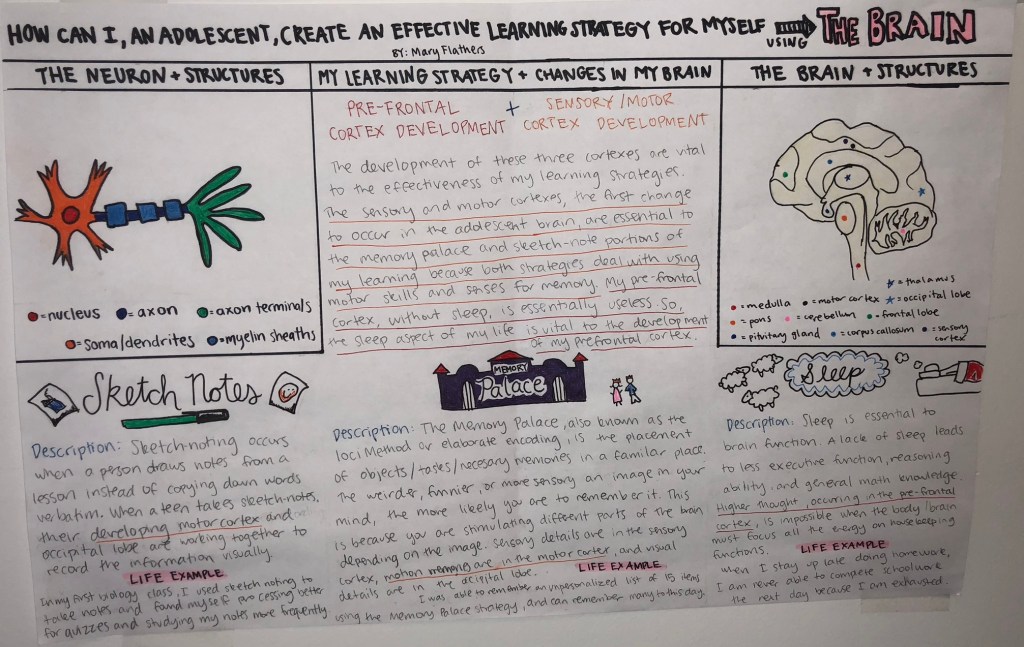 HOW CAN I, AN ADOLESCENT, CREATE AN EFFECTIVE LEARNING STRATEGY FOR MYSELF USING THE BRAIN
BY: Mary Flathers
THE NEURON + STRUCTURES
= nucleus = axon = axon terminals
= soma/dendrites = myelin sheaths
MY LEARNING STRATEGY + CHANGES IN MY BRAIN
PRE-FRONTAL + SENSORY/MOTOR
CORTEX DEVELOPMENT CORTEX DEVELOPMENT
The development of these three cortexes are vital
to the effectiveness of my learning strategies.
The sensory and motor cortexes, the first change
to occur in the adolescent brain, are essential to
the memory palace and sketch-note portions of
my learning because both strategies deal with using
motor skills and senses for memory. My pre-frontal
cortex, without sleep, is essentially useless. So,
the sleep aspect of my life is vital to the development
of my prefrontal cortex.
THE BRAIN + STRUCTURES
= thalamus
= medulla = motor cortex = occipital lobe
= pons = cerebellum = frontal lobe
= pituitary gland = corpus callosum = sensory
cortex
Sketch Notes
Description: Sketch-noting occurs
when a person draws notes from a
lesson instead of copying down words
verbatim. When a teen takes sketch-notes,
their developing motor cortex and
occipital lobe are working together to
record the information visually.
LIFE EXAMPLE
In my first biology class, I used sketch noting to
take notes and found myself processing better
for quizzes and studying my notes more frequently.
MEMORY
Palace
Description: The Memory Palace, also known as the
loci Method or elaborate encoding, is the placement
of objects/tasks/necesary memories in a familar place.
The weirder, funnier, or more sensory an image in your
mind, the more likely you are to remember it. This
is because you are stimulating different parts of the brain
depending on the image. Sensory details are in the sensory
cortex, motion are in the motor cortex, and visual
details are in the lobe.
LIFE EXAMPLE
I was able to remember an unpersonalized list of 15 items
using the Memory Palace strategy, and can remember many to this day.
Sleep
Description: Sleep is essential to
brain function. A lack of sleep leads
to less executive function, reasoning
ability, and general math knowledge.
Higher thought, occuring in the pre-frontal
cortex, is impossible when the body/brain
must focus all the energy on housekeeping
functions.
LIFE EXAMPLE
When I stay up late doing homework,
I am never able to complete schoolwork
the next day because I am exhausted.